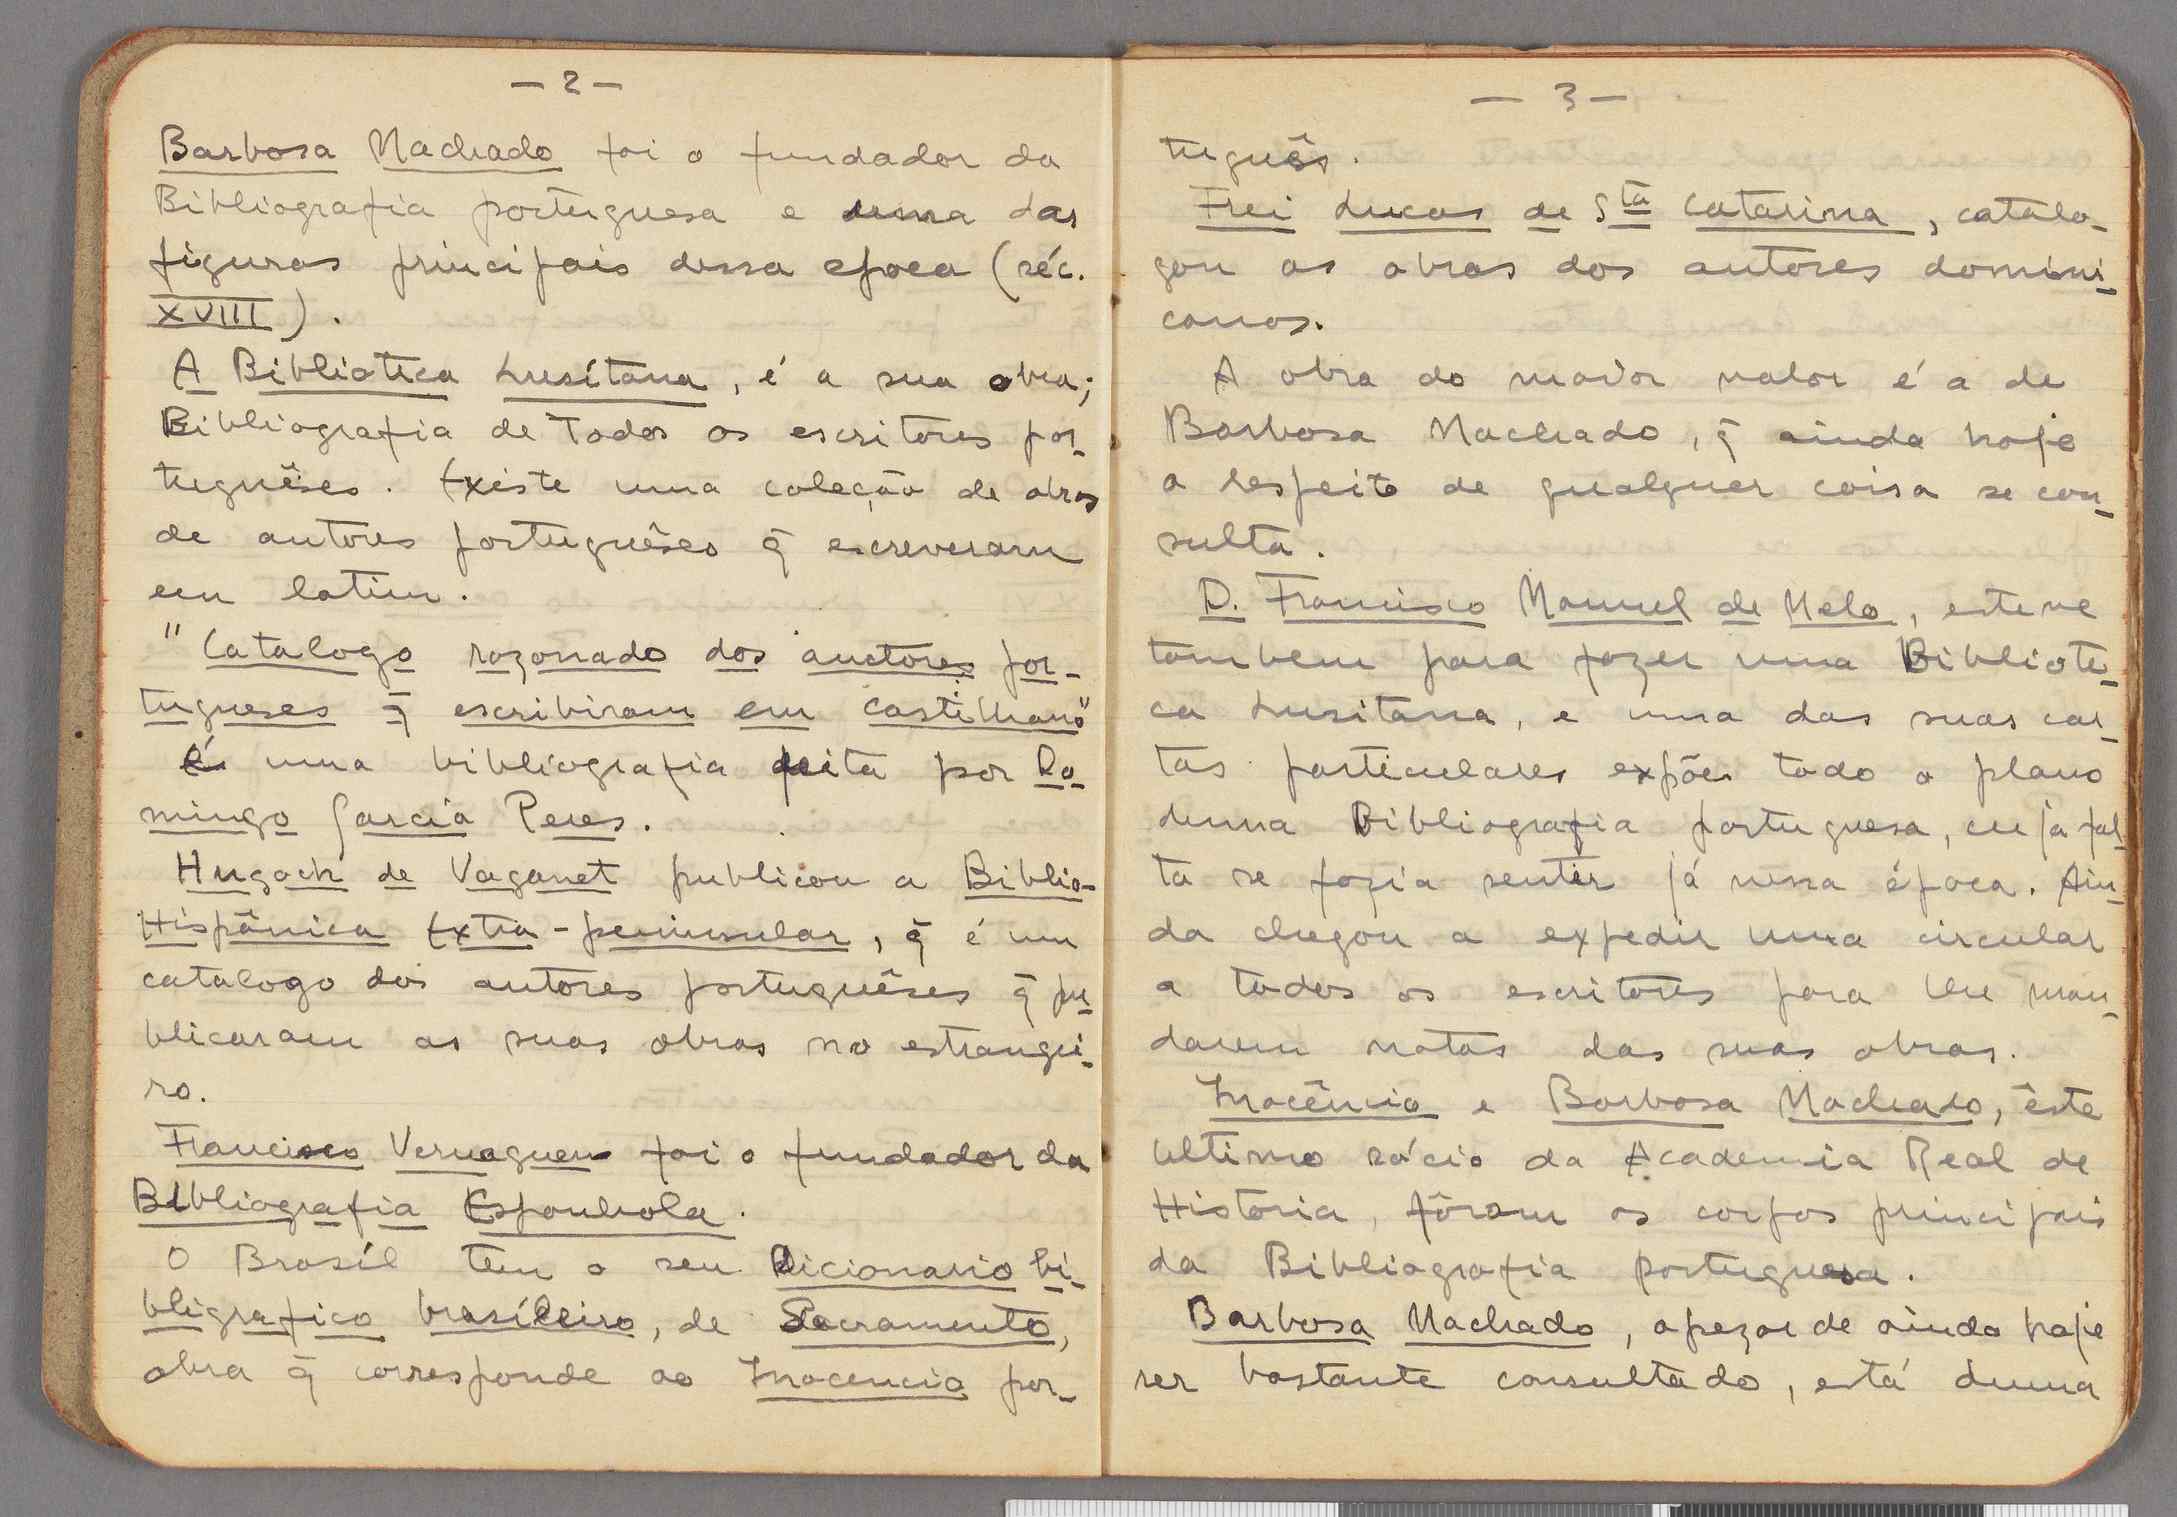 — 2 —
Barbosa Machado foi o fundador da
Bibliografia portuguesa e uma das
figuras principais dessa epoca (séc.
XVIII).
A Biblioteca Lusítana, é a sua obra;
Bibliografia de todos os escritores por-
tuguêses. Existe uma coleção de obras
de autores portuguêses q̃ escreveram
em latim.
"Catalogo razonado dos auctores por-
tugueses q̃ escribiram em castilhano"
é uma bibliografia feita por Do-
mingo Garcia Peres.
Hugoch de Vaganet publicou a Biblio-
Hispânica Extra-peninsular, q̃ é um
catalogo dos autores portuguêses q̃ pu-
blicaram as suas obras no estrangei-
ro.
Francisco Vernaguen foi o fundador da
Bibliografia Espanhola.
O Brasíl tem o seu Dicionario bi-
bligrafico brasíleiro, de Sacramento,
obra q̃ corresponde ao Inocencio por-
— 3 —
tuguês.
Frei Lucas de Sta Catarina, catalo-
gou as obras dos autores domini-
canos.
A obra do maior valor é a de
Barbosa Machado, q̃ ainda hoje
a respeito de qualquer coisa se con-
sulta.
D. Francisco Manuel de Melo, esteve
tambem para fazer uma Bibliote-
ca Lusitana, e uma das suas car-
tas particulares expões todo o plano
duma Bibliografia portuguesa, cuja fal-
ta se fazia sentir já nessa época. Ain-
da chegou a expedir uma circular
a todos os escritores para lhe man-
darem notas das suas obras.
Inocêncio e Barbosa Machado, êste
ultimo sócio da Academia Real de
Historia, fôram os corpos principais
da Bibliografia portuguesa.
Barbosa Machado, apezar de ainda hoje
ser bastante consultado, está duma